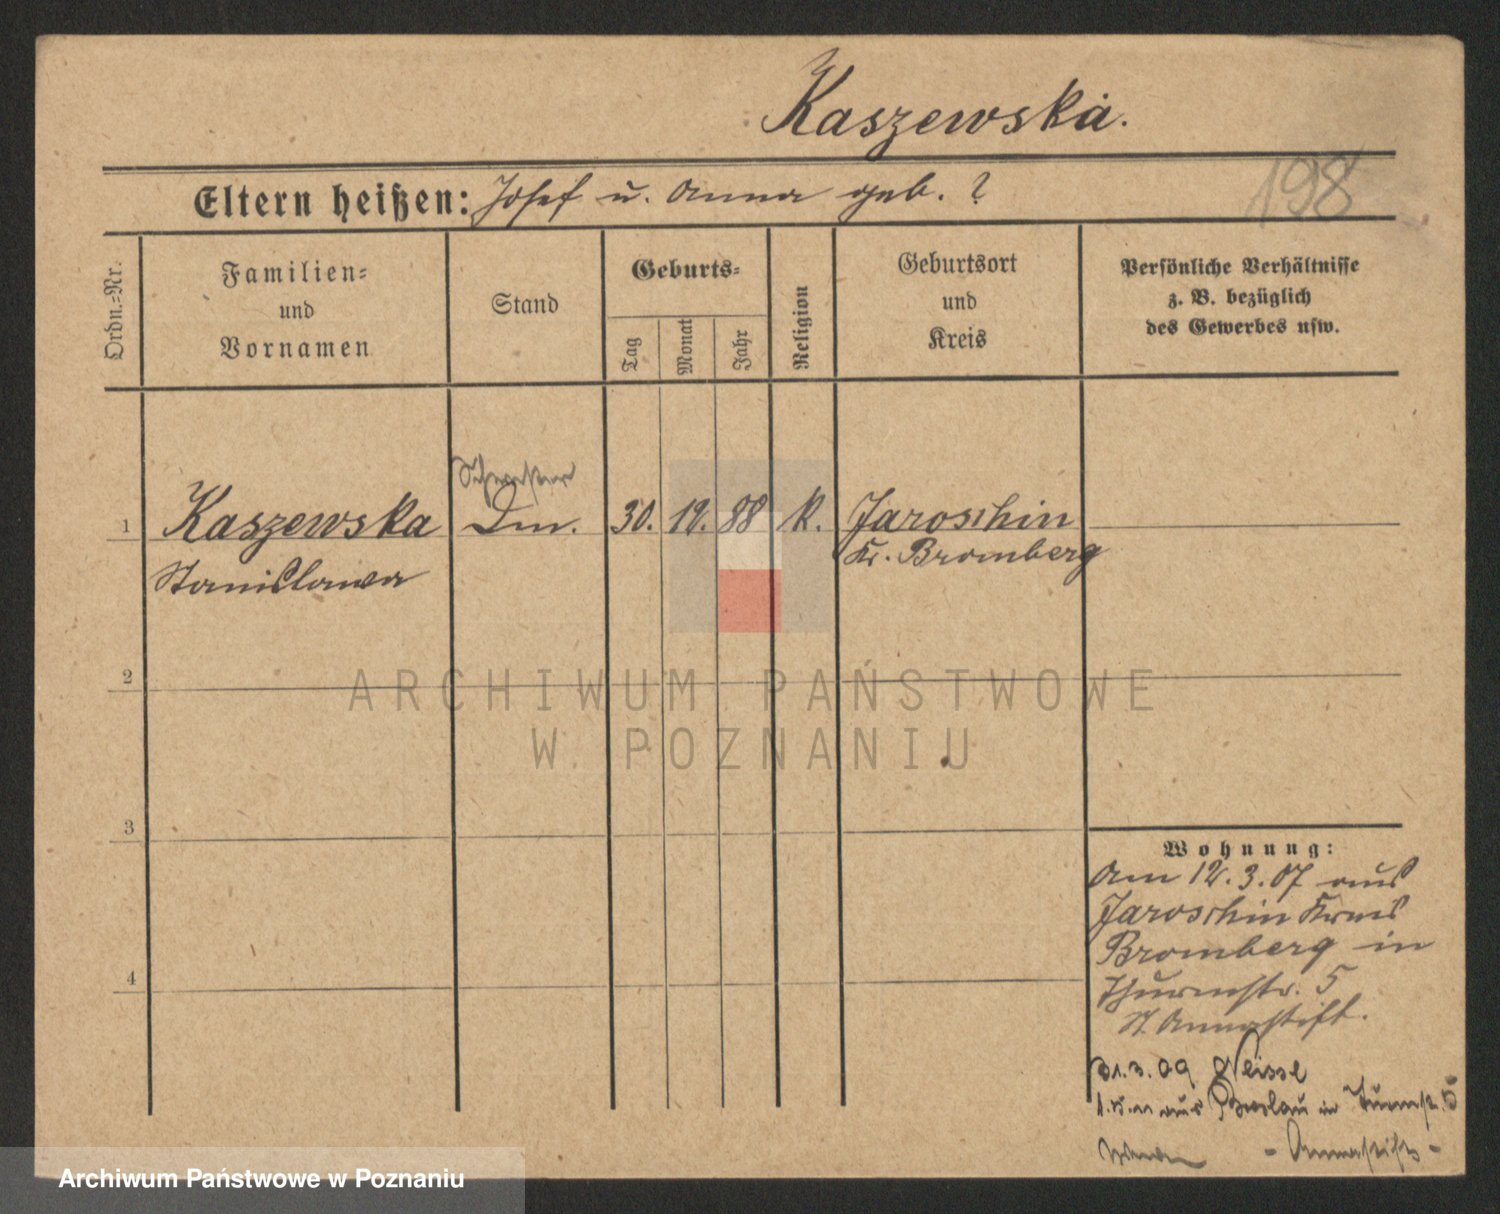 Kaszewska.
198
Eltern heißen: Josef u. Anna geb. ?
Ordn.-Nr.
Familien-
und
Vornamen
Stand
Geburts-
Tag
Monat
Jahr
Religion
Geburtsort
und
Kreis
Persönliche Verhältnisse
z. B. bezüglich
des Gewerbes usw.
Schwester
1 Kaszewska Dm. 30. 12. 88 k. Jaroschin
Stanislawa Kr. Bromberg
2
ARCHIWUM PAŃSTWOWE
W POZNANIU
3
Wohnung:
Am 12.3.07 aus
Jaroschin Kreis
Bromberg in
Thurmstr. 5
St. Annastift.
31.3.09 Neisse
aus Breslau in Turmstr. 5
- Annastift -
4
Archiwum Państwowe w Poznaniu